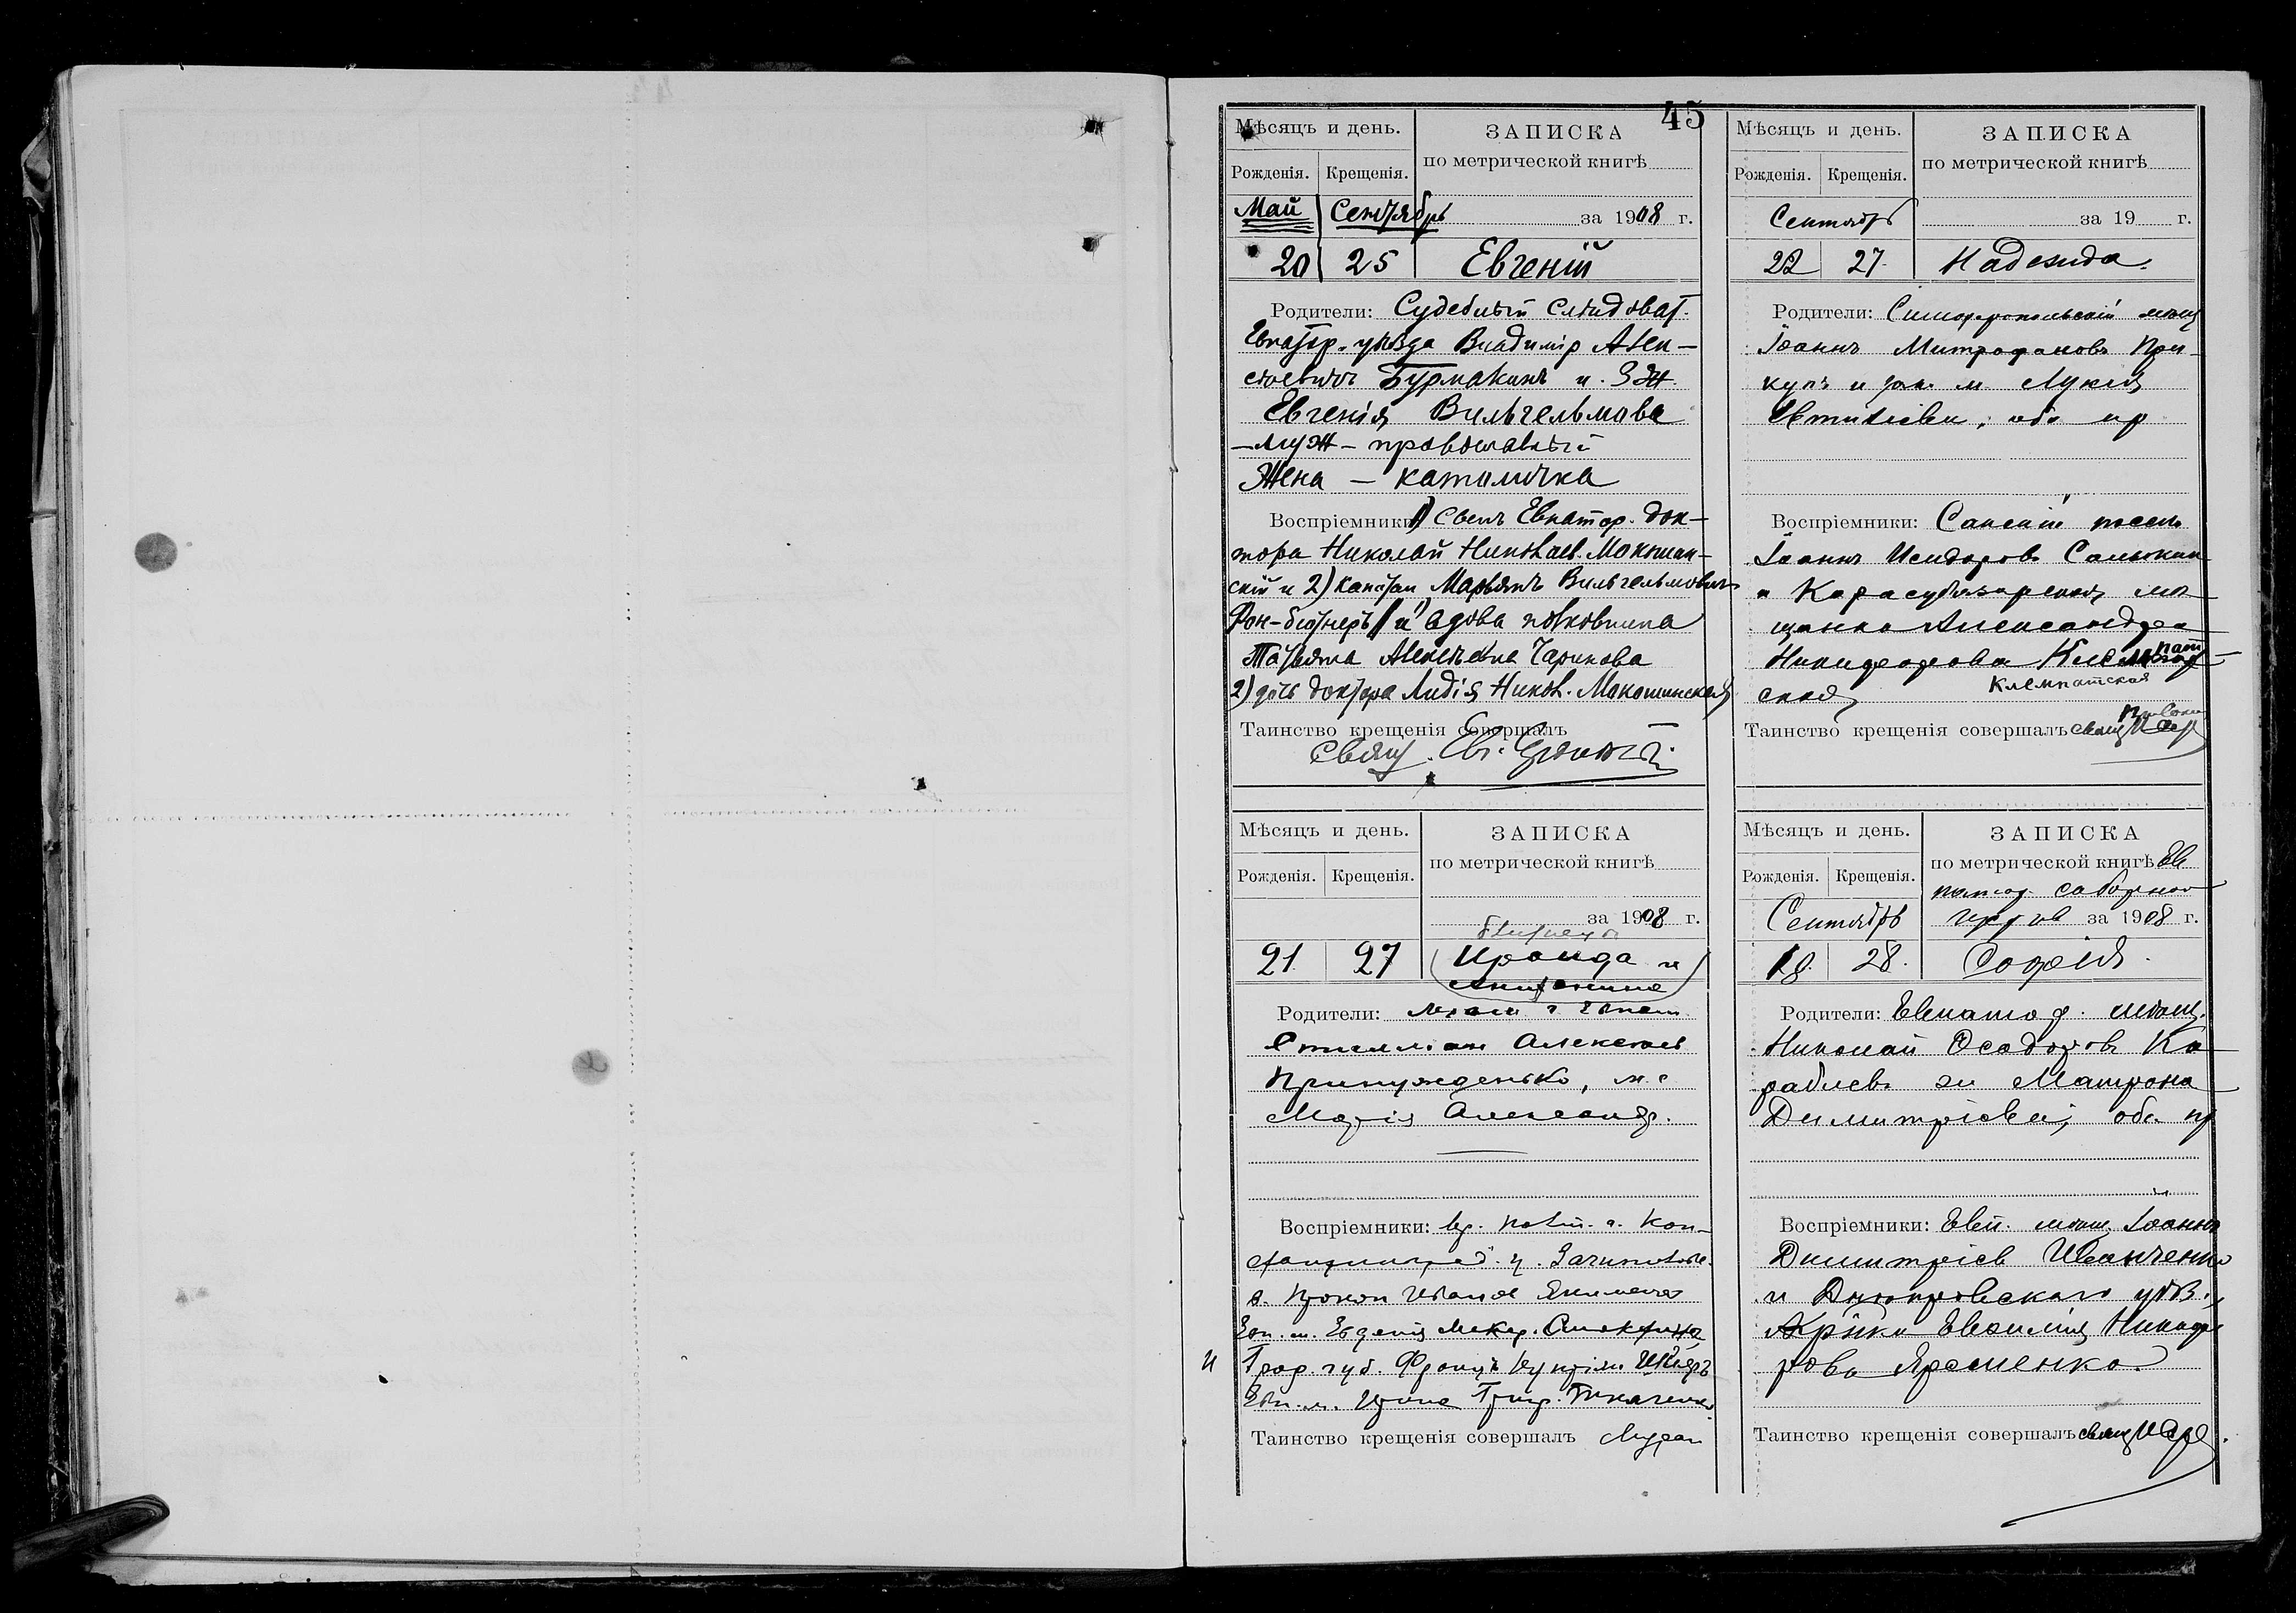 45
Мѣсяцъ и день.
ЗАПИСКА
по метрической книгѣ
Рожденія. Крещенія.
Май Сентябрь за 1908 г.
20 25 Евгеній
Родители: Судебный Слѣдоват.
Евпатор. уѣзда Владиміръ Алек-
сѣевичъ Бурмакинъ и З Ж
Евгенія Вильгельмова
– муж – православный
Жена – католичка
Воспріемники 1) сынъ Евпатор. док-
тора Николай Никол аев. Мокошин-
скій и 2) капитан Марьянъ Вильгельмович
Фон- и вдова полковника
Татьяна Алексѣевна Чарикова
2) дочь доктора Лидія Никол. Мокошинская
Таинство крещенія совершалъ
Свящ. Евг.
Мѣсяцъ и день.
ЗАПИСКА
по метрической книгѣ
Рожденія. Крещенія.
Сентябрь за 19 г.
22 27. Надежда.
Родители: Симферопольскій мѣщ
Іоаннъ Митрофановъ При-
купъ и зак. ж Лукія
Евтихіева, об. пр
Воспріемники: Сакскій посел.
Іоаннъ Исидоровъ
и Карасубазарская мѣ-
щанка Александра
Никифорова
Клемпатская
ская
Таинство крещенія совершалъ свящ
Мѣсяцъ и день.
ЗАПИСКА
по метрической книгѣ
Рожденія. Крещенія.
за 1908 г.
близнецы
21 27 Ираида и
Антонина
Родители: мѣщ г Евпат
Стиліан Алексѣев
Принужденько, ж.
Марія Александр.
Воспріемники: кр. Полт. г. Кон-
стантиноград. у.
с. Прокоп Иванов
Евп. м. Евгенія
и Грод. губ. Францъ
Евп. м. Ирина Григ. Ткаченко
Таинство крещенія совершалъ
Мѣсяцъ и день.
ЗАПИСКА
по метрической книгѣ Ев
патор. соборной
Рожденія. Крещенія.
Сентябрь церкв за 1908 г.
18. 28. Софія.
Родители: Евпатор. мѣщ.
Николай Ѳеодоровъ Ка-
раблевъ зж Матрона
Димитріева, об. пр
Воспріемники: Евп. мѣщ Іоаннъ
Димитріев Иванченко
и Днѣпровскаго уѣз.
Евфимія Никифо
рова Яременко
Таинство крещенія совершалъ свящ